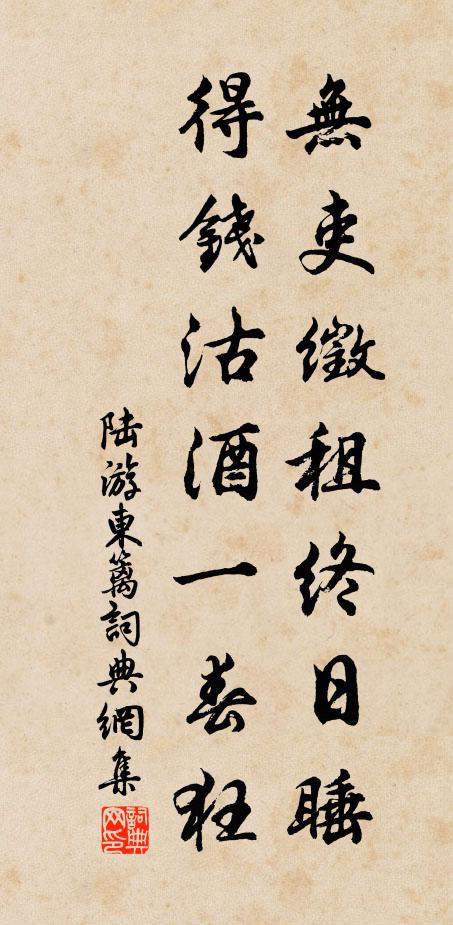 無吏徵租終日睡
得錢沽酒一春狂
陆游東篱詞典網集
詞典网印